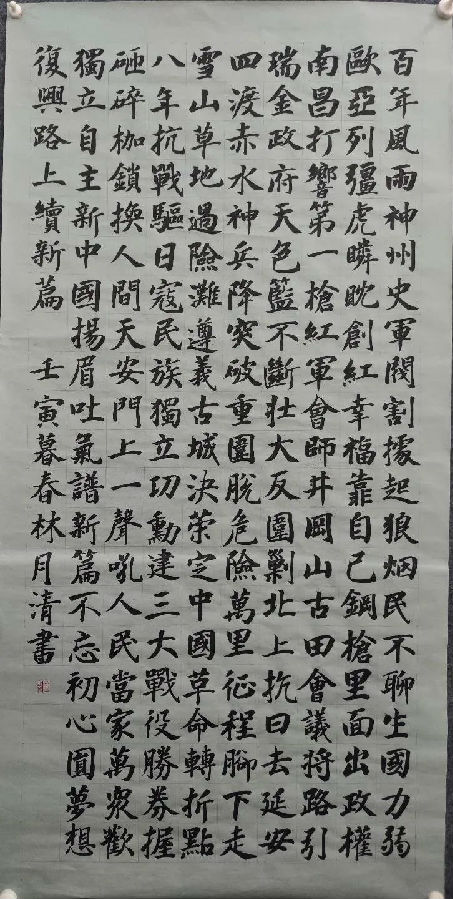 百年風雨神州史軍閥割據起狼烟民不聊生國力弱
歐亞列彊虎瞵眈創紅幸福靠自己鋼槍里面出政權
南昌打響第一槍紅軍會師井岡山古田會議将路引
瑞金政府天色籃不斷壮大反圍剿北上抗日去延安
四渡赤水神兵降突破重圍脫危險萬里征程腳下走
雪山草地過險灘遵義古城決荣定中國革命轉折點
八年抗戰驅日寇民族獨立功勳建三大戰役勝券握
砸碎枷鎖換人間天安門上一聲吼人民當家萬衆歡
獨立自主新中國揚眉吐氣譜新篇不忘初心圓夢想
復興路上續新篇 壬寅暮春林月清書